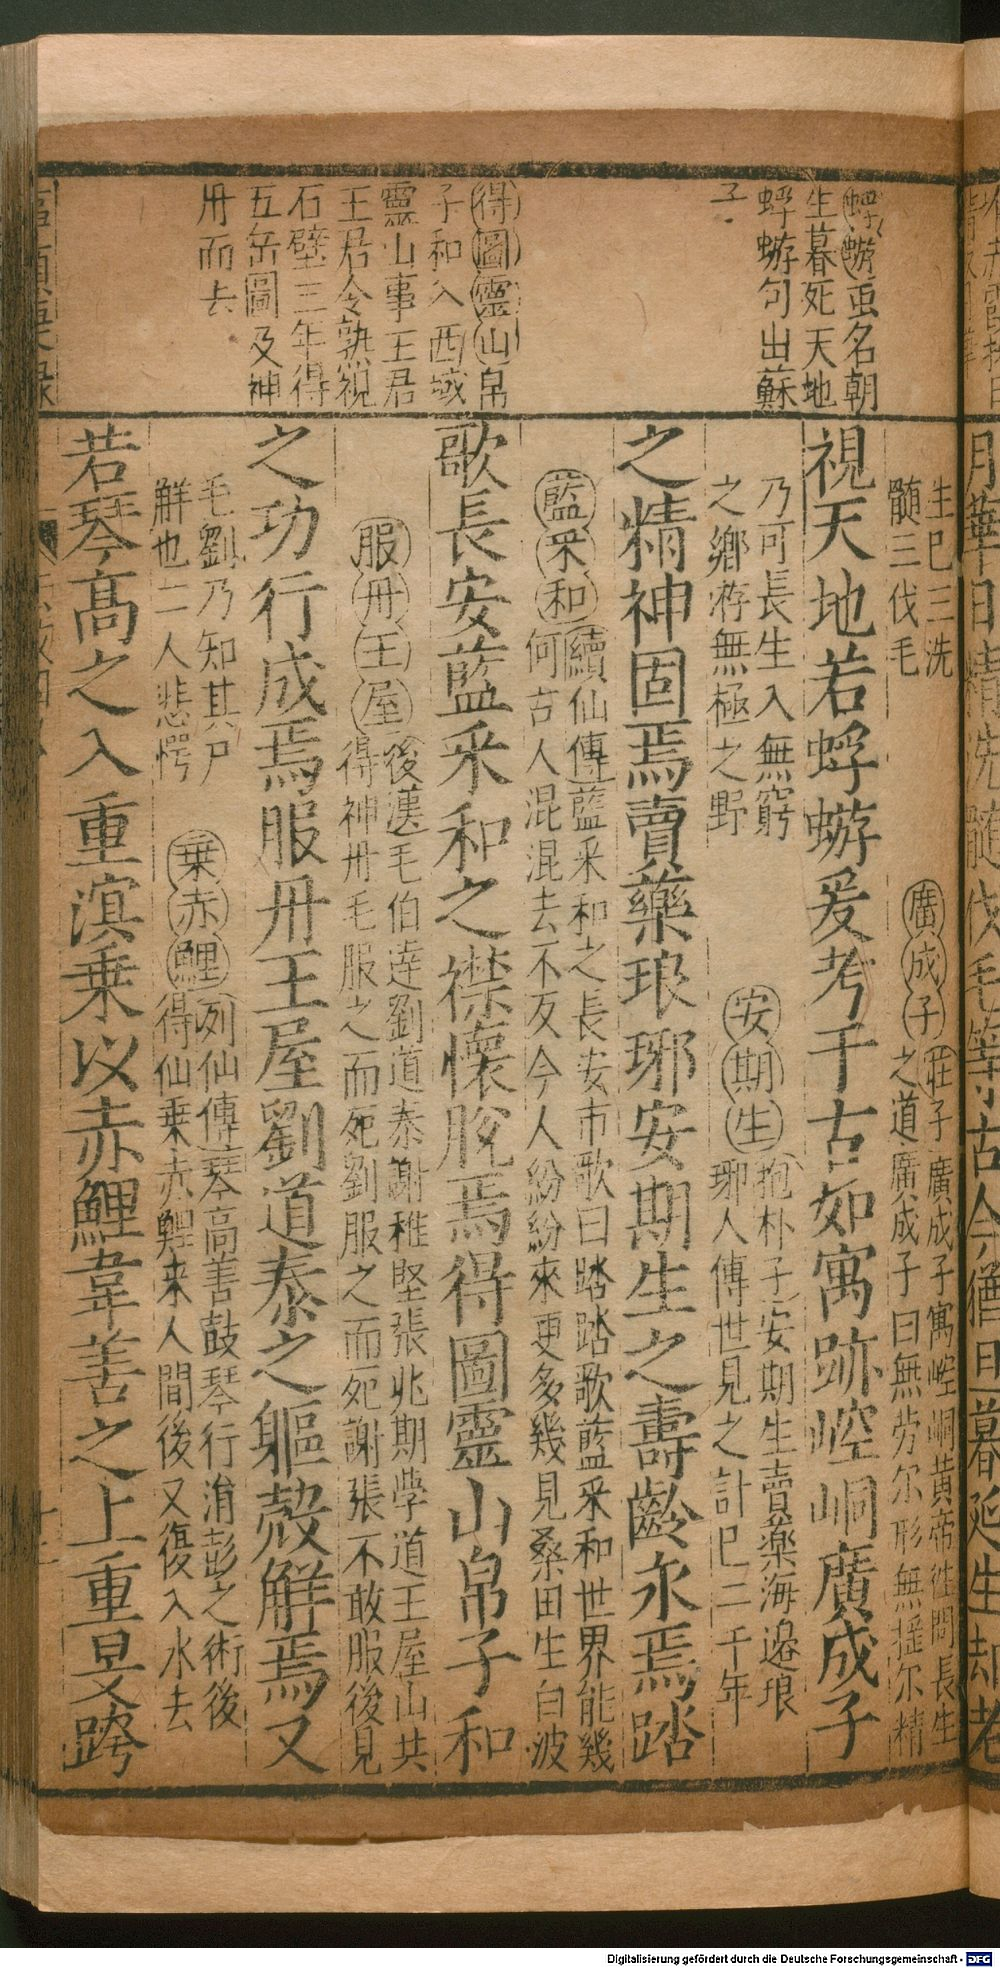 蜉蝣䖝名朝
生暮死天地
蜉蝣句出蘇
子
得圖靈山帛
子和入西域
靈山事王君
王君令熟視
石壁三年得
五岳圖及神
丹而去
生巳三洗
髄三伐毛
廣成子
莊子廣成子寓崆峒黃帝徃問長生
之道廣成子曰無劳尔形無揺尔精
視天地若蜉蝣爰考千古如寓跡崆峒廣成子
乃可長生入無窮
之鄉游無極之野
安期生
抱朴子安期生賣藥海邉琅
琊人傳世見之計巳二千年
之精神固焉賣藥琅琊安期生之壽齡永焉踏
藍采和
續仙傳藍采和之長安市歌曰踏踏歌藍采和世界能幾
何古人混混去不返今人紛紛來更多幾見桑田生白波
歌長安藍采和之襟懷脫焉得圖靈山帛子和
服丹王屋
後漢毛伯逹劉道泰謝稚堅張兆期学道王屋山共
得神丹毛服之而死劉服之而死謝張不敢服後見
之功行成焉服丹王屋劉道泰之軀殼觧焉又
毛劉乃知其尸
觧也二人悲愕
乗赤鯉
列仙傳琴高善鼓琴行涓彭之術後
得仙乗赤鯉来人間後又復入水去
若琴高之入重溟乗以赤鯉韋善之上重旻跨
Digitalisierung gefördert durch die Deutsche Forschungsgemeinschaft - DFG